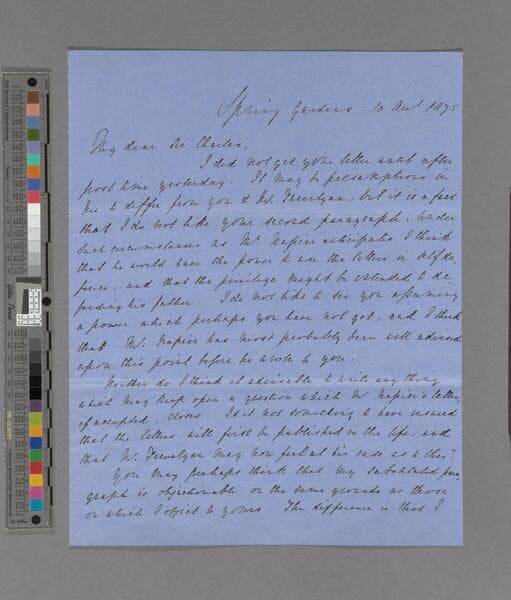 Spring Gardens - 10 Augt 1875
My dear Sir Charles,
I did not get your letter until after
post time yesterday. It may be presumptuous in
me to differ from you & Mr. Trevelyan, but it is a fact
that I do not like your second paragraph. Under
such circumstances as Mr Napier anticipates I think
that he would have the power to use the letters in self de
fence, and that the privilege might be extended to de
fending his father. I do not like to see you assuming
a power which perhaps you have not got, and I think
that Mr. Napier has most probably been well advised
upon this point before he wrote to you.
Neither do I think it advisable to write any thing
which may keep open a question which Mr Napier's letter,
if accepted, closes. Is it not something to have insured
that the letters will first be published in the life, and
that Mr. Trevelyan may now feel at his ease as to this?
You may perhaps think that my substituted para
graph is objectionable on the same grounds as those
on which I object to yours. The difference is that I